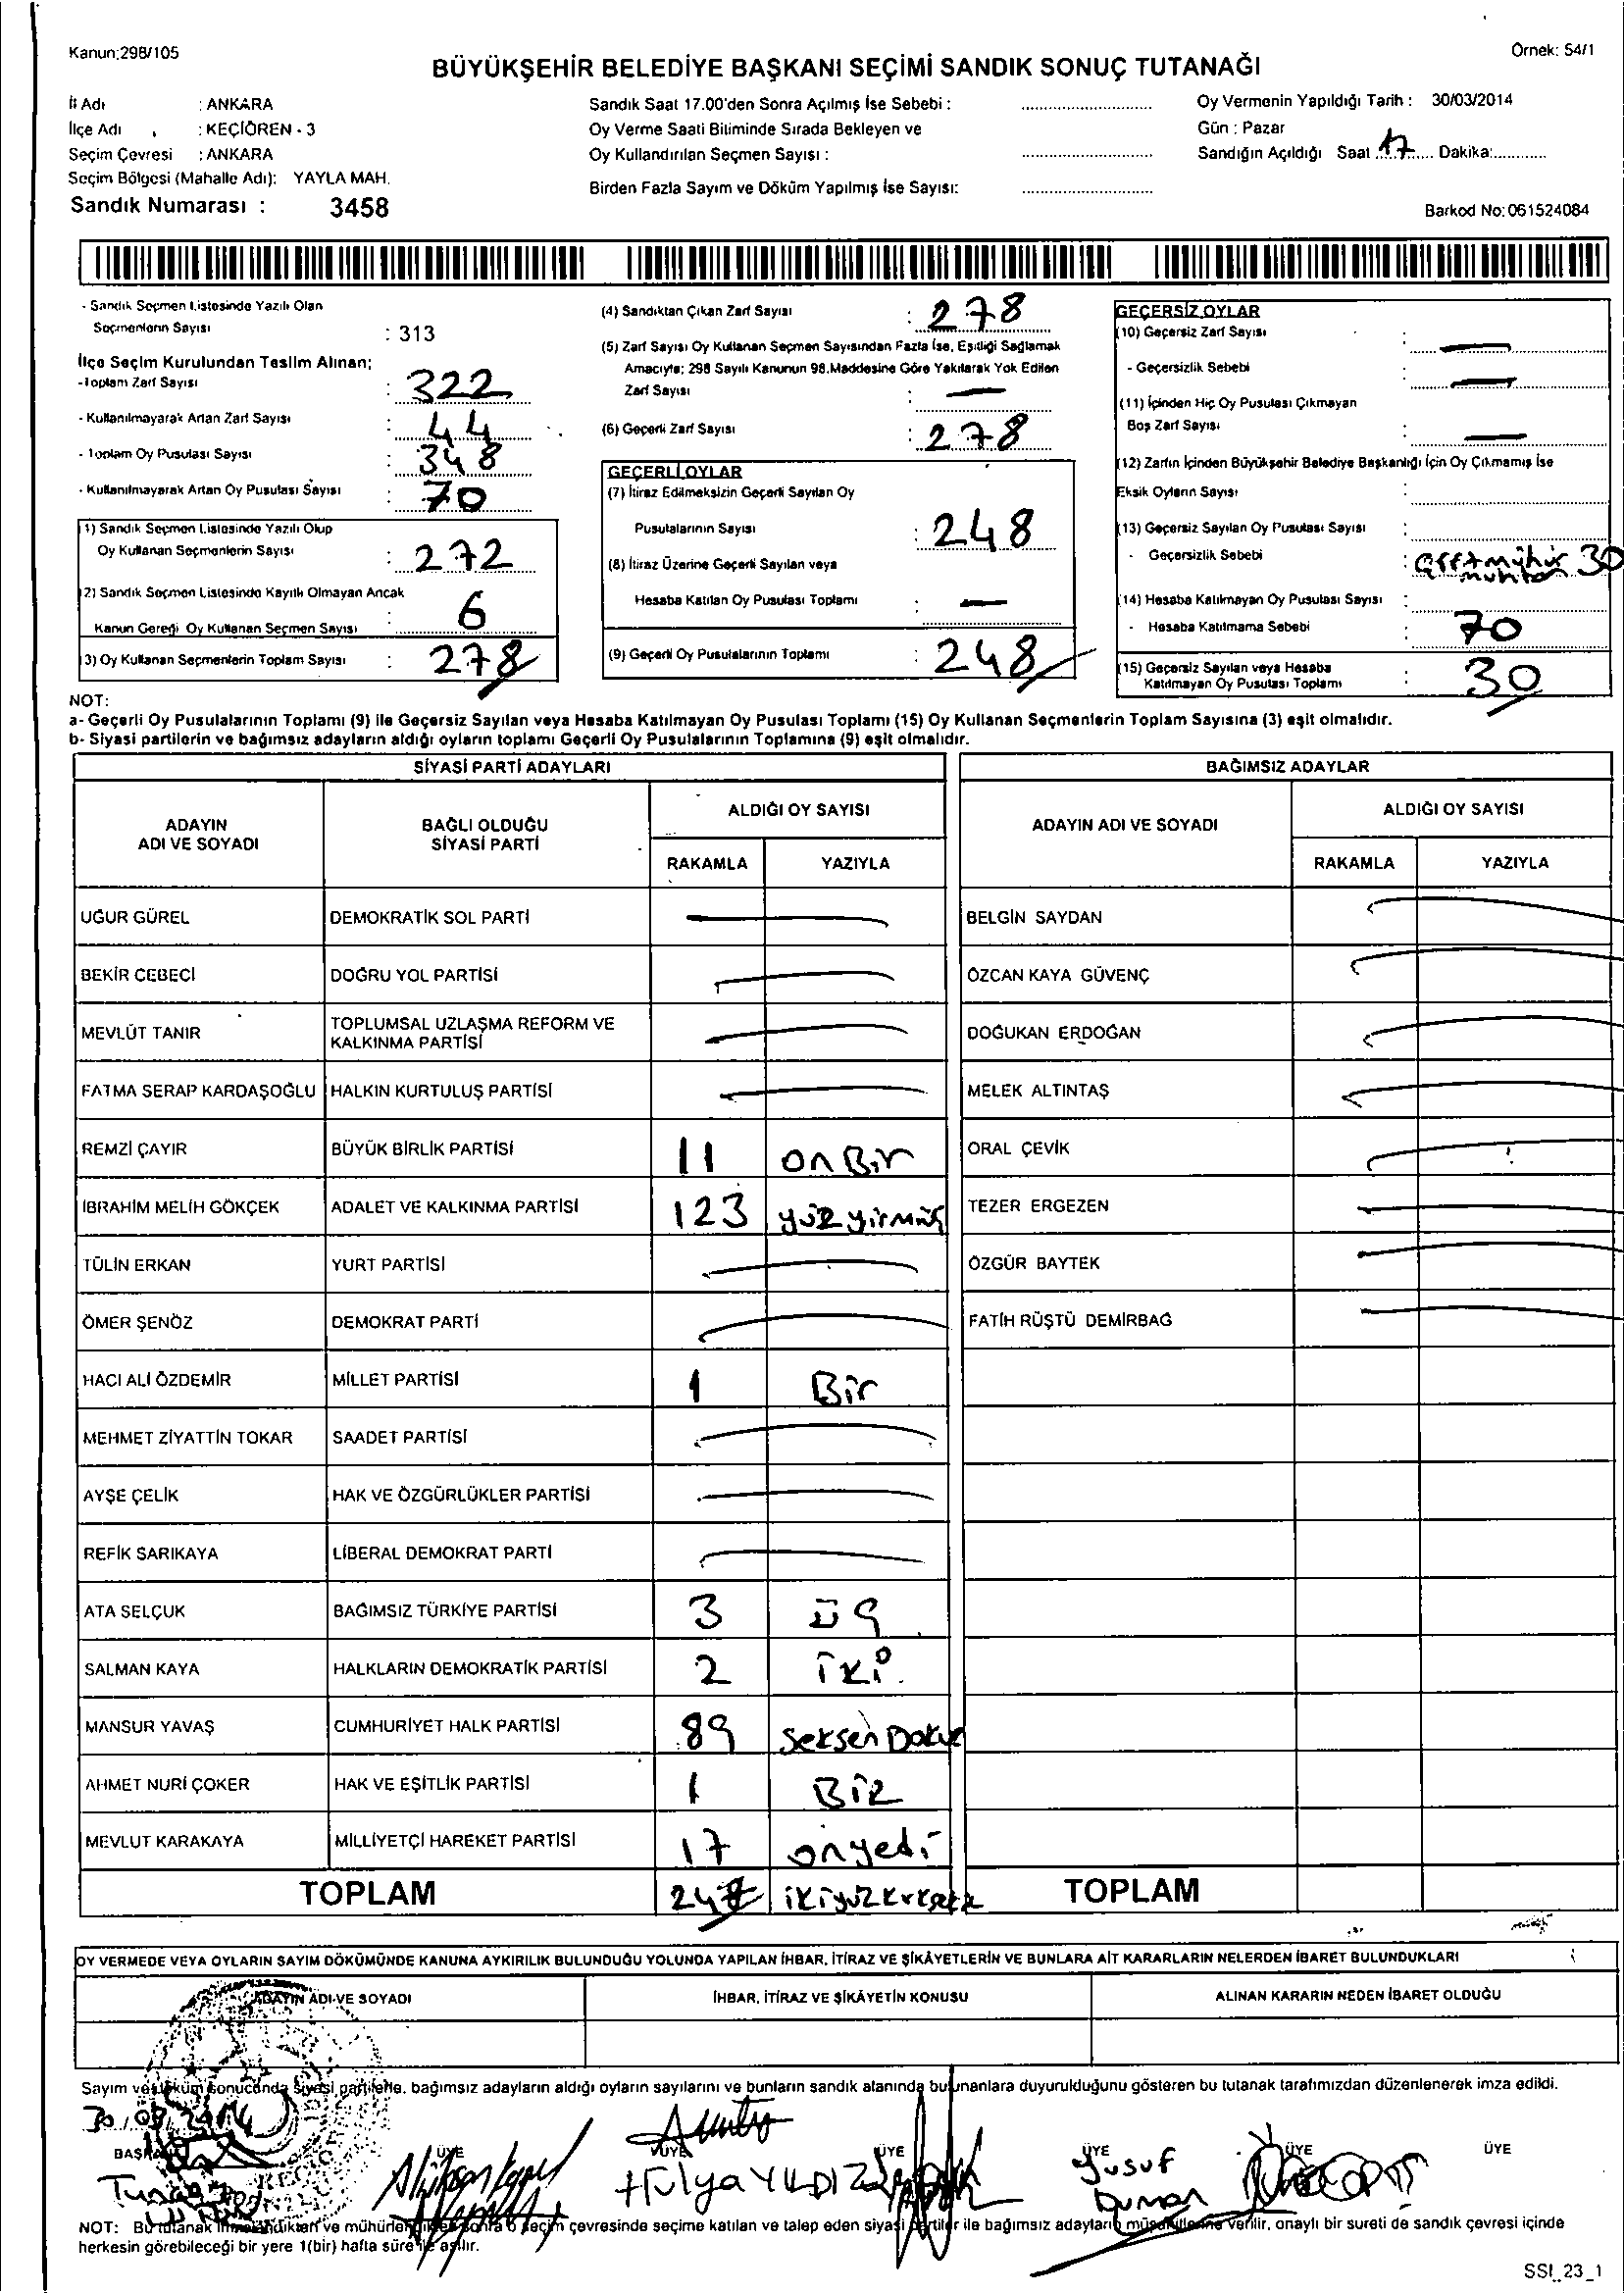 Kanun:298/105
Örnek: 54/1
BÜYÜKŞEHİR BELEDİYE BAŞKANI SEÇİMİ SANDIK SONUÇ TUTANAĞI
İl Adı : ANKARA
İlçe Adı : KEÇİÖREN - 3
Seçim Çevresi : ANKARA
Seçim Bölgesi (Mahalle Adı): YAYLA MAH.
Sandık Numarası : 3458
Sandık Saat 17.00'den Sonra Açılmış İse Sebebi :
Oy Verme Saati Bitiminde Sırada Bekleyen ve
Oy Kullandırılan Seçmen Sayısı :
Birden Fazla Sayım ve Döküm Yapılmış İse Sayısı:
Oy Vermenin Yapıldığı Tarih : 30/03/2014
Gün : Pazar
Sandığın Açıldığı Saat 17 Dakika:
Barkod No:061524084
- Sandık Seçmen Listesinde Yazılı Olan
Seçmenlerin Sayısı : 313
İlçe Seçim Kurulundan Teslim Alınan;
-Toplam Zarf Sayısı : 322
- Kullanılmayarak Artan Zarf Sayısı : 44
- Toplam Oy Pusulası Sayısı : 348
- Kullanılmayarak Artan Oy Pusulası Sayısı : 70
1) Sandık Seçmen Listesinde Yazılı Olup
Oy Kullanan Seçmenlerin Sayısı : 272
2) Sandık Seçmen Listesinde Kayıtlı Olmayan Ancak
Kanun Gereği Oy Kullanan Seçmen Sayısı : 6
3) Oy Kullanan Seçmenlerin Toplam Sayısı : 278
(4) Sandıktan Çıkan Zarf Sayısı : 278
(5) Zarf Sayısı Oy Kullanan Seçmen Sayısından Fazla İse, Eşitliği Sağlamak
Amacıyla; 298 Sayılı Kanunun 98.Maddesine Göre Yakılarak Yok Edilen
Zarf Sayısı : —
(6) Geçerli Zarf Sayısı : 278
GEÇERLİ OYLAR
(7) İtiraz Edilmeksizin Geçerli Sayılan Oy
Pusulalarının Sayısı : 248
(8) İtiraz Üzerine Geçerli Sayılan veya
Hesaba Katılan Oy Pusulası Toplamı : —
(9) Geçerli Oy Pusulalarının Toplamı : 248
GEÇERSİZ OYLAR
(10) Geçersiz Zarf Sayısı : —
- Geçersizlik Sebebi : —
(11) İçinden Hiç Oy Pusulası Çıkmayan
Boş Zarf Sayısı : —
(12) Zarfın İçinden Büyükşehir Belediye Başkanlığı İçin Oy Çıkmamış İse
Eksik Oyların Sayısı :
(13) Geçersiz Sayılan Oy Pusulası Sayısı :
- Geçersizlik Sebebi : çift mühür 30
(14) Hesaba Katılmayan Oy Pusulası Sayısı :
- Hesaba Katılmama Sebebi : 70
(15) Geçersiz Sayılan veya Hesaba
Katılmayan Oy Pusulası Toplamı : 30
NOT:
a- Geçerli Oy Pusulalarının Toplamı (9) ile Geçersiz Sayılan veya Hesaba Katılmayan Oy Pusulası Toplamı (15) Oy Kullanan Seçmenlerin Toplam Sayısına (3) eşit olmalıdır.
b- Siyasi partilerin ve bağımsız adayların aldığı oyların toplamı Geçerli Oy Pusulalarının Toplamına (9) eşit olmalıdır.
SİYASİ PARTİ ADAYLARI
ADAYIN ADI VE SOYADI BAĞLI OLDUĞU SİYASİ PARTİ ALDIĞI OY SAYISI
RAKAMLA YAZIYLA
UĞUR GÜREL DEMOKRATİK SOL PARTİ —
BEKİR CEBECİ DOĞRU YOL PARTİSİ —
MEVLÜT TANIR TOPLUMSAL UZLAŞMA REFORM VE KALKINMA PARTİSİ —
FATMA SERAP KARDAŞOĞLU HALKIN KURTULUŞ PARTİSİ —
REMZİ ÇAYIR BÜYÜK BİRLİK PARTİSİ 11 onBir
İBRAHİM MELİH GÖKÇEK ADALET VE KALKINMA PARTİSİ 123 yüz yirmiüç
TÜLİN ERKAN YURT PARTİSİ —
ÖMER ŞENÖZ DEMOKRAT PARTİ —
HACI ALİ ÖZDEMİR MİLLET PARTİSİ 1 Bir
MEHMET ZİYATTİN TOKAR SAADET PARTİSİ —
AYŞE ÇELİK HAK VE ÖZGÜRLÜKLER PARTİSİ —
REFİK SARIKAYA LİBERAL DEMOKRAT PARTİ —
ATA SELÇUK BAĞIMSIZ TÜRKİYE PARTİSİ 3 üç
SALMAN KAYA HALKLARIN DEMOKRATİK PARTİSİ 2 iki.
MANSUR YAVAŞ CUMHURİYET HALK PARTİSİ 89 seksen Dokuz
AHMET NURİ ÇOKER HAK VE EŞİTLİK PARTİSİ 1 BİR
MEVLUT KARAKAYA MİLLİYETÇİ HAREKET PARTİSİ 17 onyedi
TOPLAM 248 ikiyüzkırksekiz
BAĞIMSIZ ADAYLAR
ADAYIN ADI VE SOYADI ALDIĞI OY SAYISI
RAKAMLA YAZIYLA
BELGİN SAYDAN —
ÖZCAN KAYA GÜVENÇ —
DOĞUKAN ERDOĞAN —
MELEK ALTINTAŞ —
ORAL ÇEVİK —
TEZER ERGEZEN —
ÖZGÜR BAYTEK —
FATİH RÜŞTÜ DEMİRBAĞ —
TOPLAM
OY VERMEDE VEYA OYLARIN SAYIM DÖKÜMÜNDE KANUNA AYKIRILIK BULUNDUĞU YOLUNDA YAPILAN İHBAR, İTİRAZ VE ŞİKÂYETLERİN VE BUNLARA AİT KARARLARIN NELERDEN İBARET BULUNDUKLARI
ADAYIN ADI VE SOYADI İHBAR, İTİRAZ VE ŞİKÂYETİN KONUSU ALINAN KARARIN NEDEN İBARET OLDUĞU
Sayım ve döküm sonucunda siyasi partilerle, bağımsız adayların aldığı oyların sayılarını ve bunların sandık alanında bulunanlara duyurulduğunu gösteren bu tutanak tarafımızdan düzenlenerek imza edildi.
30/03/2014
BAŞKAN ÜYE ÜYE ÜYE ÜYE ÜYE ÜYE
Hülya YILDIZ
Yusuf
Duman
NOT: Bu tutanak imzalandıktan ve mühürlendikten sonra o seçim çevresinde seçime katılan ve talep eden siyasi partiler ile bağımsız adayların müşahitlerine verilir, onaylı bir sureti de sandık çevresi içinde
herkesin görebileceği bir yere 1(bir) hafta süre ile asılır.
SSI_23_1